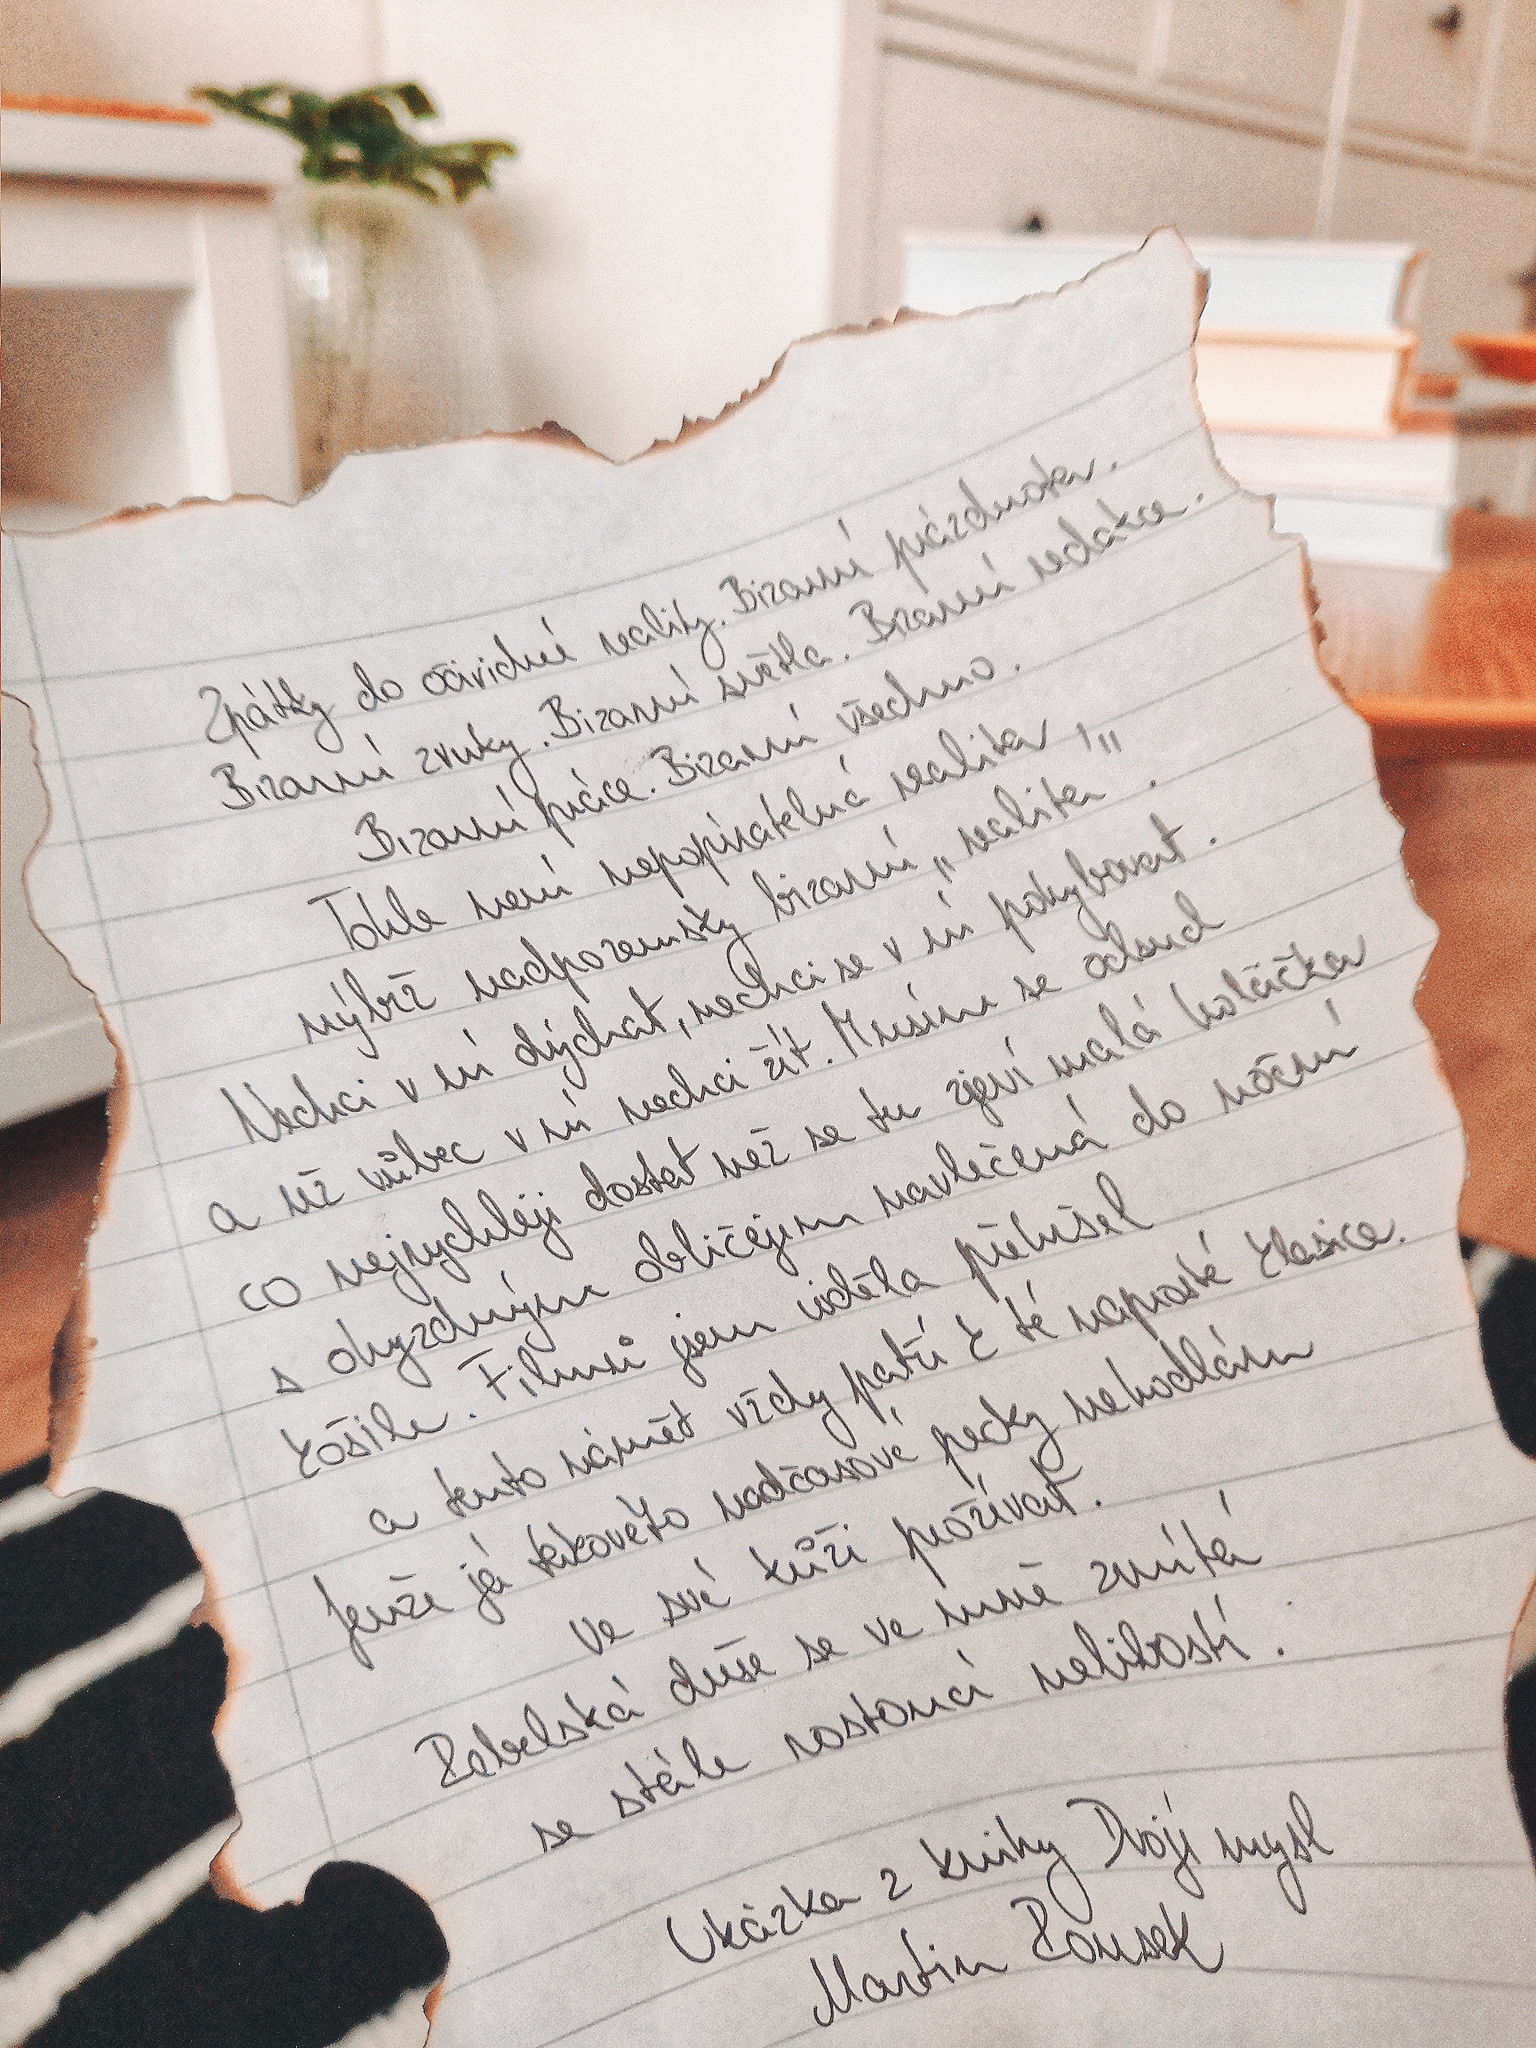 Zpátky do očividné reality. Bizarní prázdnota.
Bizarní zvuky. Bizarní světla. Bizarní redakce.
Bizarní práce. Bizarní všechno.
Tohle není nepopiratelná realita,
nýbrž nadpozemsky bizarní „realita".
Nechci v ní dýchat, nechci se v ní pohybovat.
a už vůbec v ní nechci žít. Musím se odsud
co nejrychleji dostat než se tu zjeví malá holčička
s ohyzdným obličejem navlečená do noční
košile. Filmů jsem viděla přehršel
a tento námět vždy patří k té naprosté klasice.
Jenže já takovéto nadčasové pecky nehodlám
ve své kůži prožívat.
Rebelská duše se ve mně zmítá
se stále rostoucí nelibostí.
Ukázka z knihy Dvojí mysl
Martin Rousek